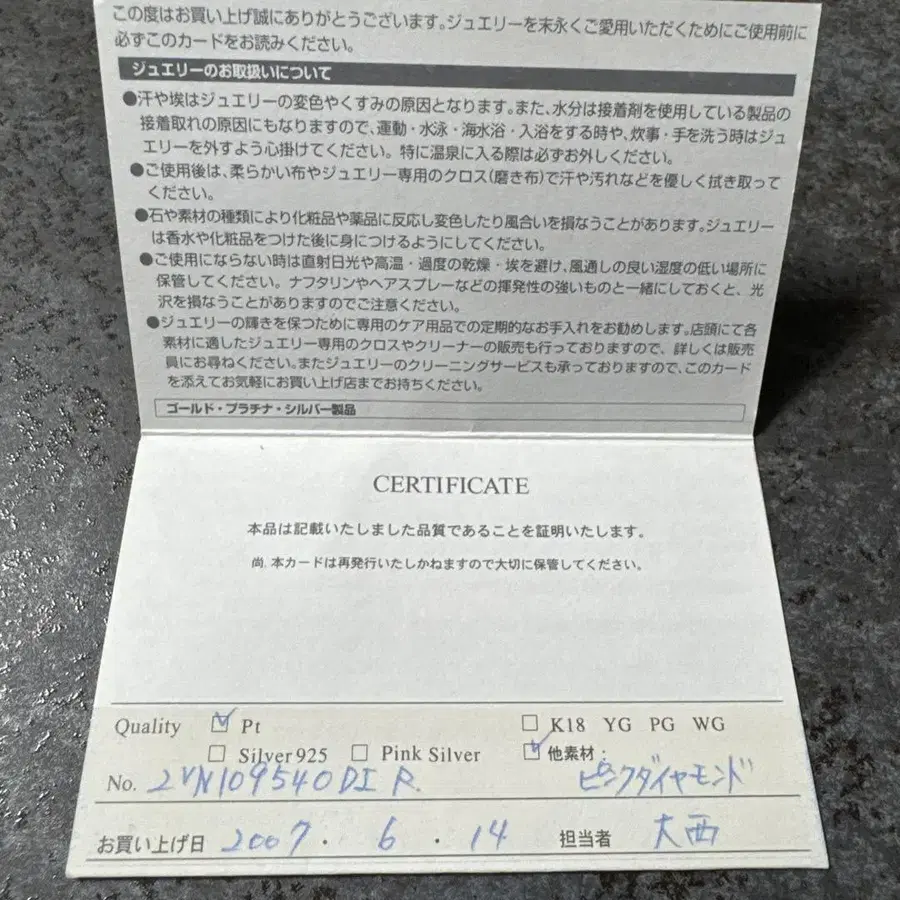 この度はお買い上げ誠にありがとうございます。ジュエリーを末永くご愛用いただくためにご使用前に
必ずこのカードをお読みください。
ジュエリーのお取扱いについて
●汗や埃はジュエリーの変色やくすみの原因となります。また、水分は接着剤を使用している製品の
接着取れの原因にもなりますので、運動・水泳・海水浴・入浴をする時や、炊事・手を洗う時はジュ
エリーを外すよう心掛けてください。特に温泉に入る際は必ずお外しください。
●ご使用後は、柔らかい布やジュエリー専用のクロス(磨き布)で汗や汚れなどを優しく拭き取って
ください。
●石や素材の種類により化粧品や薬品に反応し変色したり風合いを損なうことがあります。ジュエリー
は香水や化粧品をつけた後に身につけるようにしてください。
●ご使用にならない時は直射日光や高温・過度の乾燥・埃を避け、風通しの良い湿度の低い場所に
保管してください。ナフタリンやヘアスプレーなどの揮発性の強いものと一緒にしておくと、光
沢を損なうことがありますのでご注意ください。
●ジュエリーの輝きを保つために専用のケア用品での定期的なお手入れをお勧めします。店頭にて各
素材に適したジュエリー専用のクロスやクリーナーの販売も行っておりますので、詳しくは販売
員にお尋ねください。またジュエリーのクリーニングサービスも承っておりますので、このカード
を添えてお気軽にお買い上げ店までお持ちください。
ゴールド・プラチナ・シルバー製品
CERTIFICATE
本品は記載いたしました品質であることを証明いたします。
尚、本カードは再発行いたしかねますので大切に保管してください。
Quality ☑ Pt □ K18 YG PG WG
□ Silver925 □ Pink Silver ☑ 他素材:
No. 2VN109540DI R. ピンクダイヤモンド
お買い上げ日 2007. 6. 14 担当者 大西